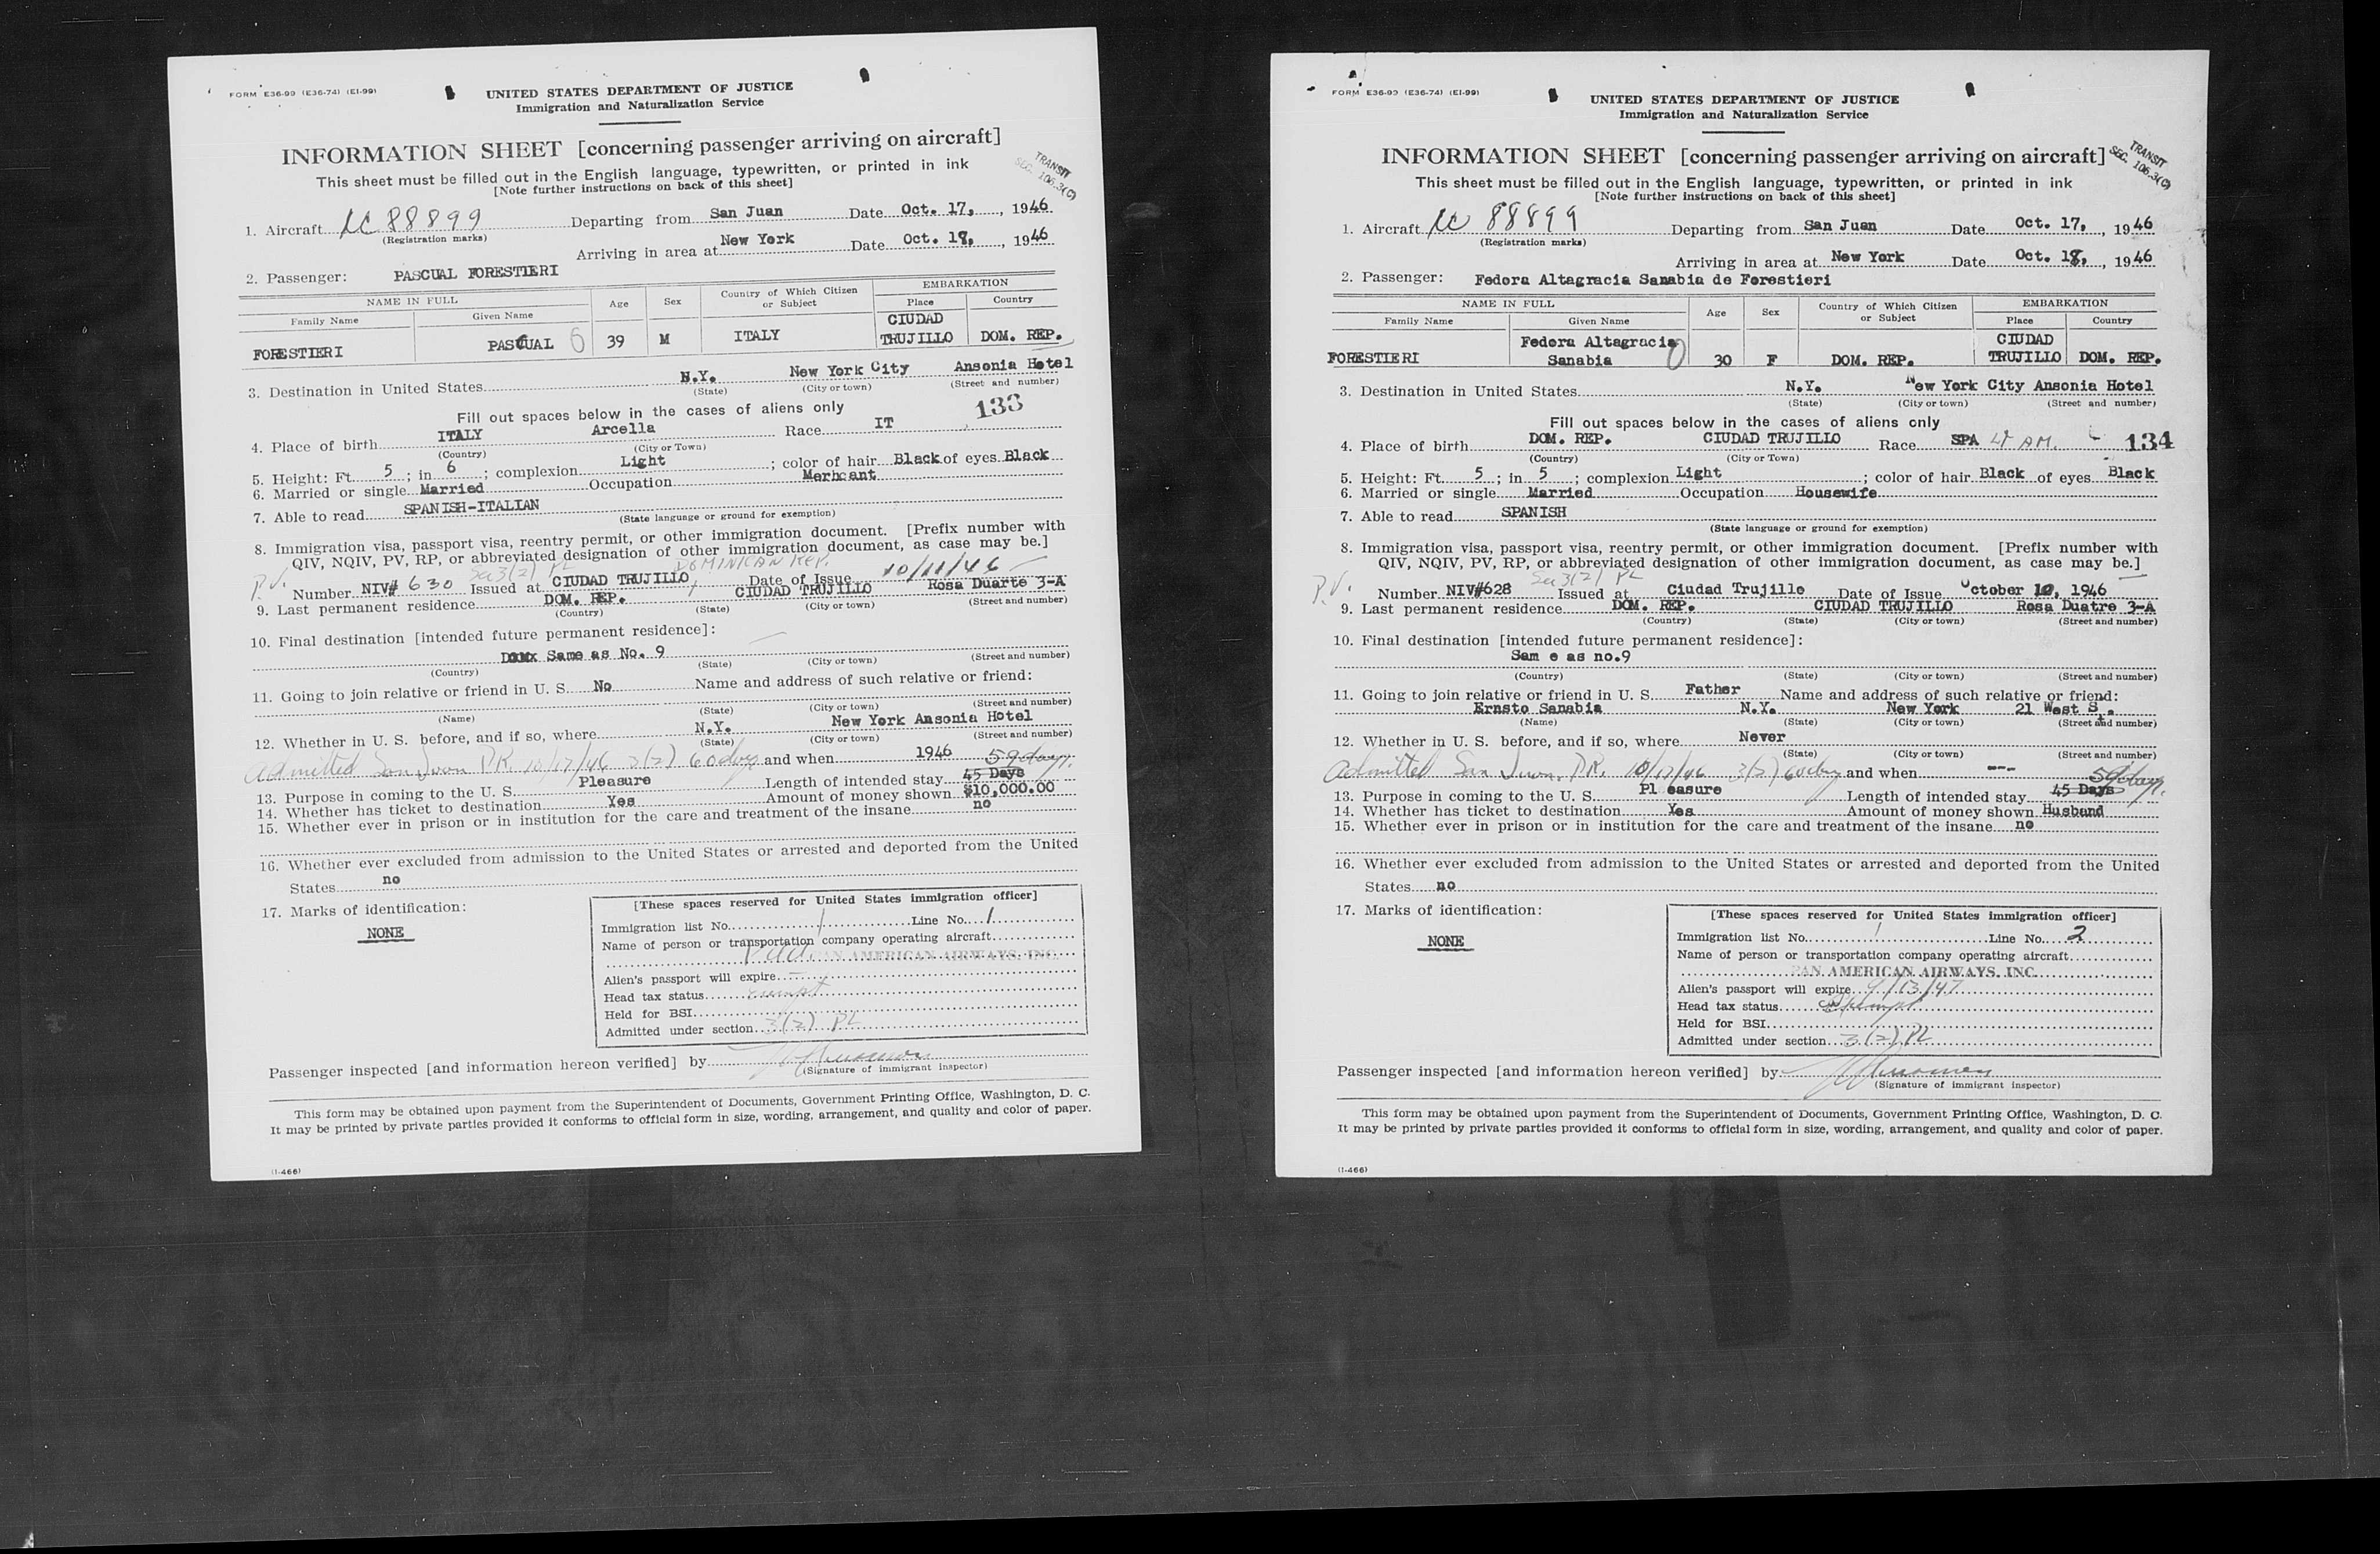 FORM E36-99 (E36-74) (EI-99)
UNITED STATES DEPARTMENT OF JUSTICE
Immigration and Naturalization Service
INFORMATION SHEET [concerning passenger arriving on aircraft]
TRANSIT
SEC. 106.3(C)
This sheet must be filled out in the English language, typewritten, or printed in ink
[Note further instructions on back of this sheet]
1. Aircraft NC 88899 Departing from San Juan Date Oct. 17, , 1946
(Registration marks)
Arriving in area at New York Date Oct. 18, , 1946
2. Passenger: PASCUAL FORESTIERI
NAME IN FULL Age Sex Country of Which Citizen or Subject EMBARKATION
Family Name Given Name Place Country
FORESTIERI PASCUAL 39 M ITALY CIUDAD TRUJILLO DOM. REP.
3. Destination in United States N.Y. New York City Ansonia Hotel
(State) (City or town) (Street and number)
Fill out spaces below in the cases of aliens only 133
4. Place of birth ITALY Arcella Race IT
(Country) (City or Town)
5. Height: Ft. 5 ; in 6 ; complexion Light ; color of hair Black of eyes Black
6. Married or single Married Occupation Merhcant
7. Able to read SPANISH-ITALIAN
(State language or ground for exemption)
8. Immigration visa, passport visa, reentry permit, or other immigration document. [Prefix number with
QIV, NQIV, PV, RP, or abbreviated designation of other immigration document, as case may be.]
P.V. Sec 3(2) PL DOMINICAN REP.
Number NIV# 630 Issued at CIUDAD TRUJILLO, Date of Issue 10/11/46
9. Last permanent residence DOM. REP. CIUDAD TRUJILLO Rosa Duarte 3-A
(Country) (State) (City or town) (Street and number)
10. Final destination [intended future permanent residence]:
Same as No. 9
(Country) (State) (City or town) (Street and number)
11. Going to join relative or friend in U. S. No Name and address of such relative or friend:
(Name) (State) (City or town) (Street and number)
12. Whether in U. S. before, and if so, where N.Y. New York Ansonia Hotel
(State) (City or town) (Street and number)
Admitted San Juan P.R. 10/17/46 3(2) 60 days and when 1946 59 days
13. Purpose in coming to the U. S. Pleasure Length of intended stay 45 Days
14. Whether has ticket to destination Yes Amount of money shown $10,000.00
15. Whether ever in prison or in institution for the care and treatment of the insane no
16. Whether ever excluded from admission to the United States or arrested and deported from the United
States no
17. Marks of identification:
NONE
[These spaces reserved for United States immigration officer]
Immigration list No. 1 Line No. 1
Name of person or transportation company operating aircraft
PAN AMERICAN AIRWAYS, INC.
Alien's passport will expire
Head tax status exempt
Held for BSI
Admitted under section 3(2) PL
Passenger inspected [and information hereon verified] by
(Signature of immigrant inspector)
This form may be obtained upon payment from the Superintendent of Documents, Government Printing Office, Washington, D. C.
It may be printed by private parties provided it conforms to official form in size, wording, arrangement, and quality and color of paper.
(I-466)
FORM E36-99 (E36-74) (EI-99)
UNITED STATES DEPARTMENT OF JUSTICE
Immigration and Naturalization Service
INFORMATION SHEET [concerning passenger arriving on aircraft]
TRANSIT
SEC. 106.3(C)
This sheet must be filled out in the English language, typewritten, or printed in ink
[Note further instructions on back of this sheet]
1. Aircraft NC 88899 Departing from San Juan Date Oct. 17, , 1946
(Registration marks)
Arriving in area at New York Date Oct. 18, , 1946
2. Passenger: Fedora Altagracia Sanabia de Forestieri
NAME IN FULL Age Sex Country of Which Citizen or Subject EMBARKATION
Family Name Given Name Place Country
FORESTIERI Fedora Altagracia Sanabia 30 F DOM. REP. CIUDAD TRUJILLO DOM. REP.
3. Destination in United States N.Y. New York City Ansonia Hotel
(State) (City or town) (Street and number)
Fill out spaces below in the cases of aliens only
4. Place of birth DOM. REP. CIUDAD TRUJILLO Race SPA AM. 134
(Country) (City or Town)
5. Height: Ft. 5 ; in 5 ; complexion Light ; color of hair Black of eyes Black
6. Married or single Married Occupation Housewife
7. Able to read SPANISH
(State language or ground for exemption)
8. Immigration visa, passport visa, reentry permit, or other immigration document. [Prefix number with
QIV, NQIV, PV, RP, or abbreviated designation of other immigration document, as case may be.]
P.V. Sec 3(2) PL
Number NIV#628 Issued at Ciudad Trujillo Date of Issue October 10, 1946
9. Last permanent residence DOM. REP. CIUDAD TRUJILLO Rosa Duatre 3-A
(Country) (State) (City or town) (Street and number)
10. Final destination [intended future permanent residence]:
Sam e as no.9
(Country) (State) (City or town) (Street and number)
11. Going to join relative or friend in U. S. Father Name and address of such relative or friend:
Ernsto Sanabia N.Y. New York 21 West St.
(Name) (State) (City or town) (Street and number)
12. Whether in U. S. before, and if so, where Never
(State) (City or town) (Street and number)
Admitted San Juan, P.R. 10/17/46 3(2) 60 days and when --- 59 days
13. Purpose in coming to the U. S. Pl easure Length of intended stay 45 Days
14. Whether has ticket to destination Yes Amount of money shown Husband
15. Whether ever in prison or in institution for the care and treatment of the insane no
16. Whether ever excluded from admission to the United States or arrested and deported from the United
States no
17. Marks of identification:
NONE
[These spaces reserved for United States immigration officer]
Immigration list No. 1 Line No. 2
Name of person or transportation company operating aircraft
PAN AMERICAN AIRWAYS, INC.
Alien's passport will expire 9/13/47
Head tax status Exempt
Held for BSI
Admitted under section 3(2) PL
Passenger inspected [and information hereon verified] by
(Signature of immigrant inspector)
This form may be obtained upon payment from the Superintendent of Documents, Government Printing Office, Washington, D. C.
It may be printed by private parties provided it conforms to official form in size, wording, arrangement, and quality and color of paper.
(I-466)